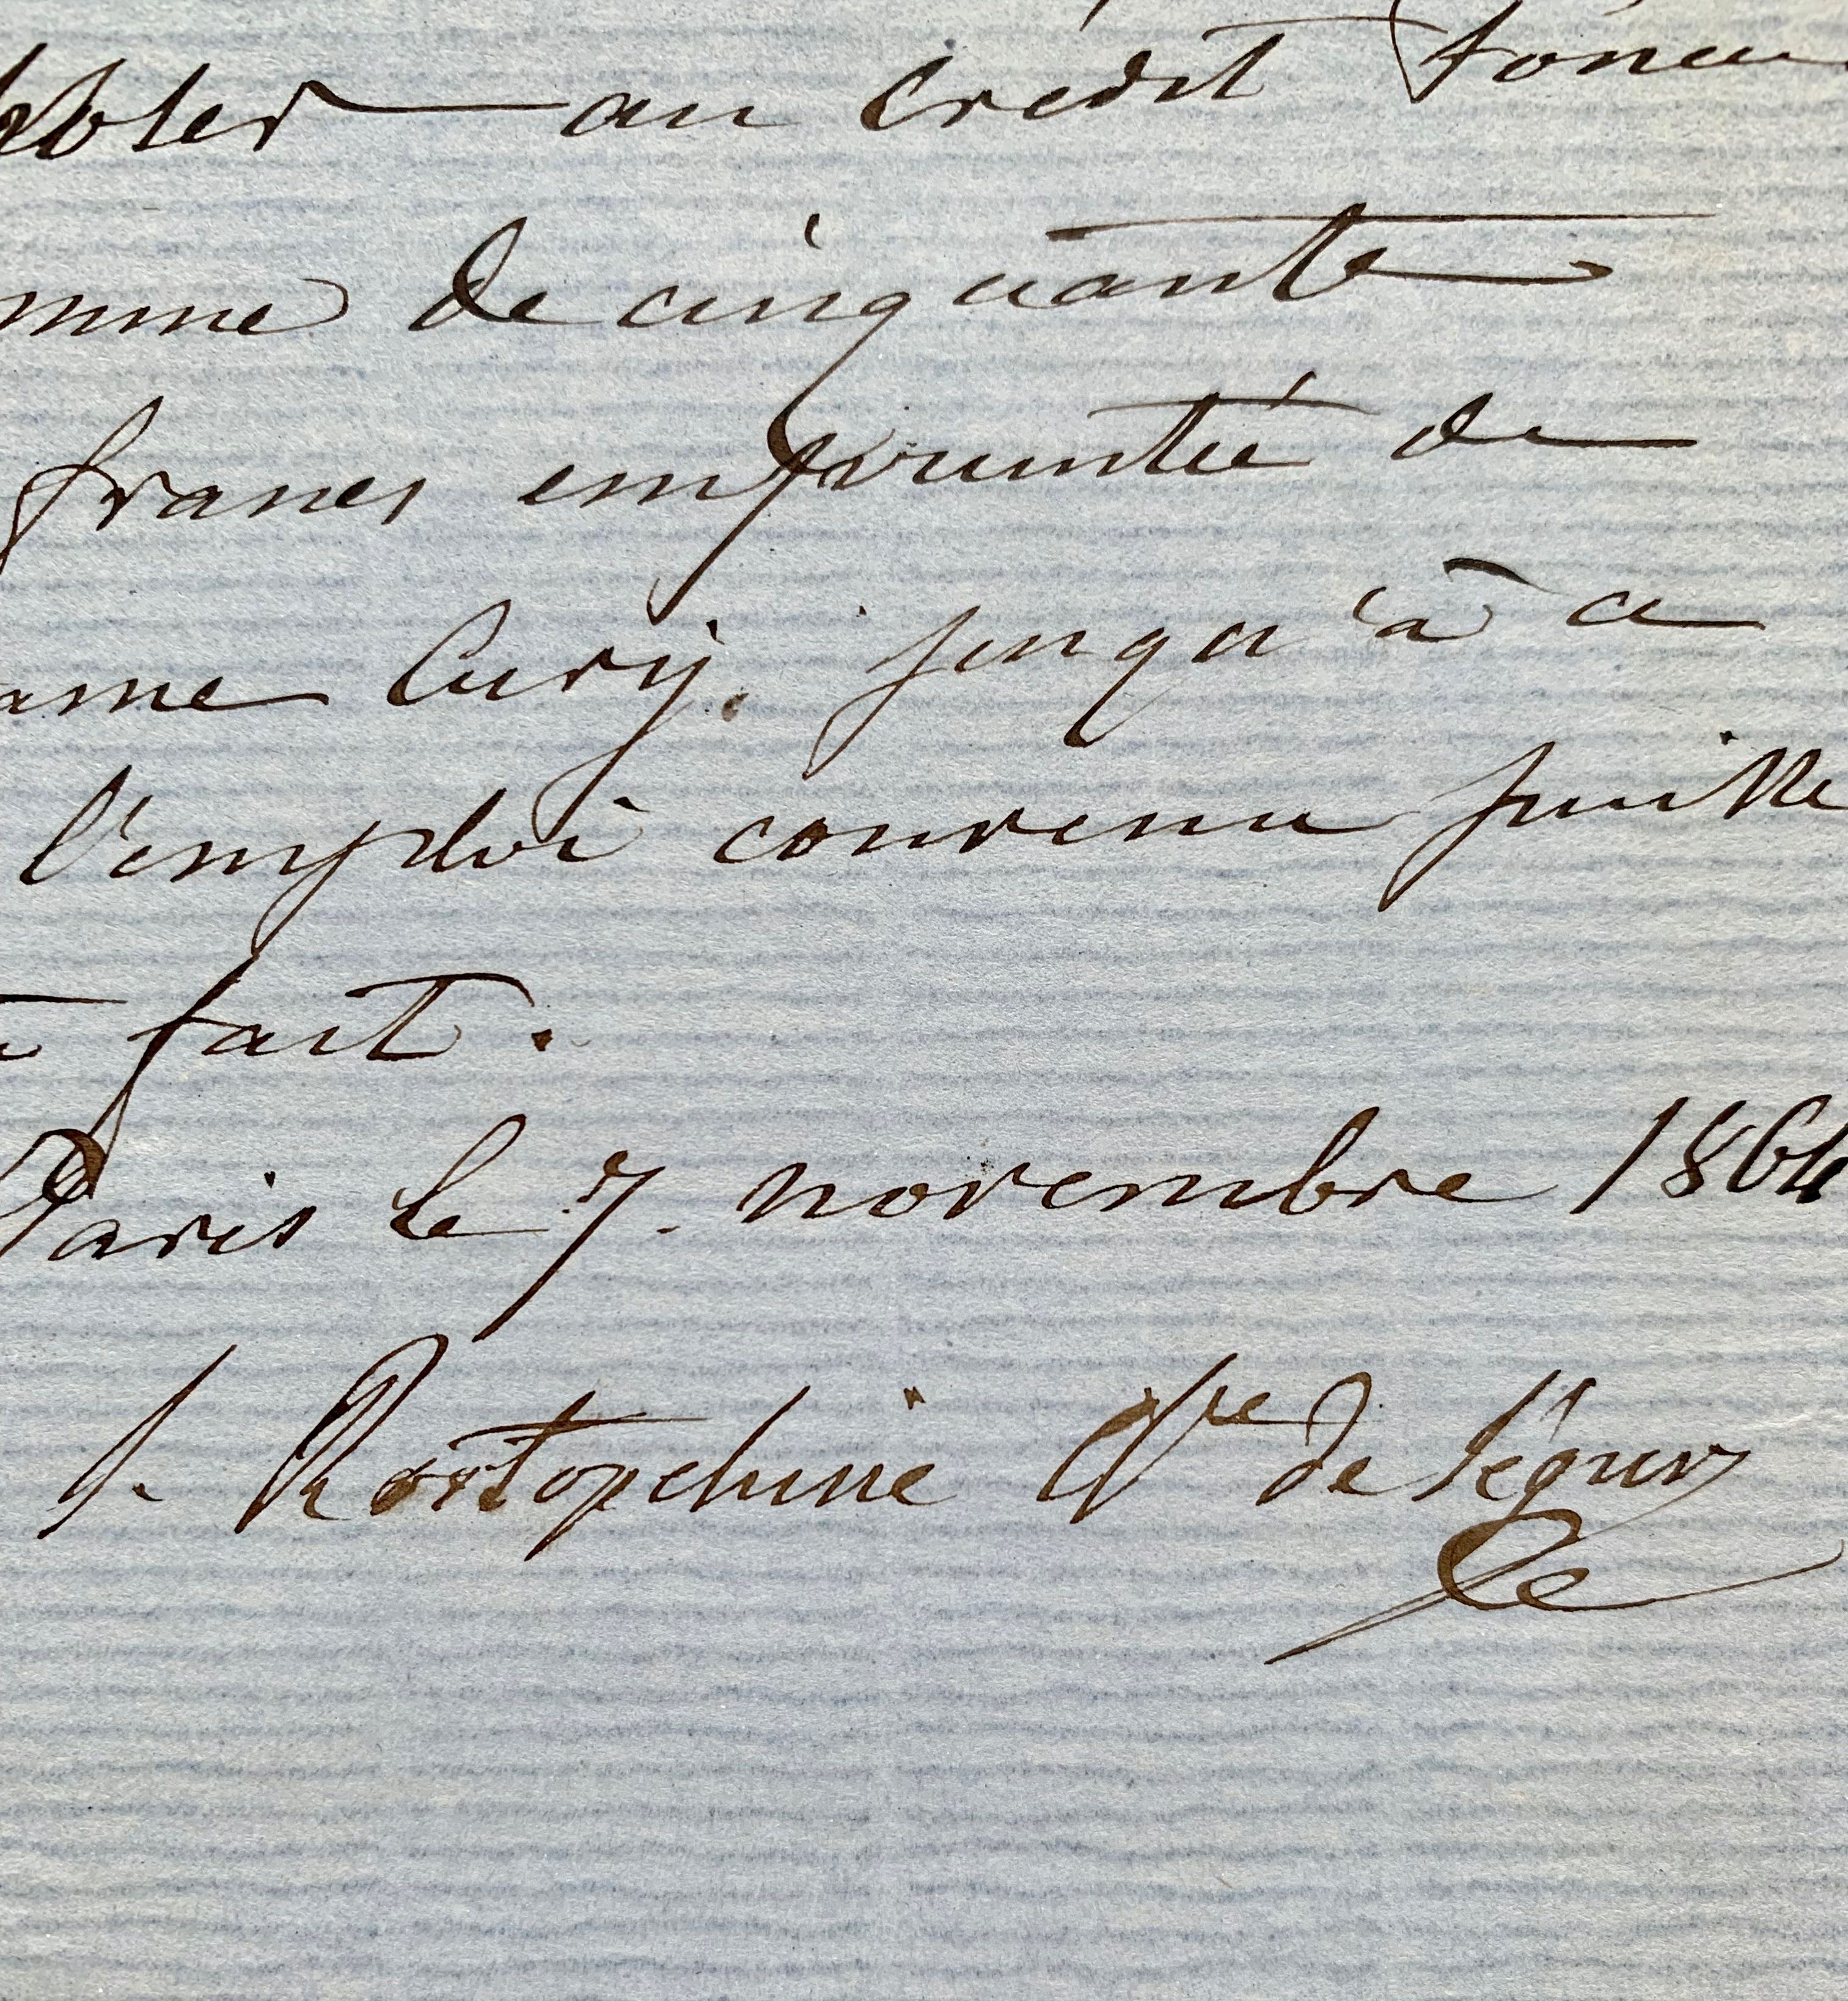 au Crédit fonci
mme de cinquante
francs empruntée de
ame Cury. jusqu'à ce
l'emploi convenu puisse
fait.
Paris le 7. novembre 1864
S. Rostopchine Ctsse de Ségur